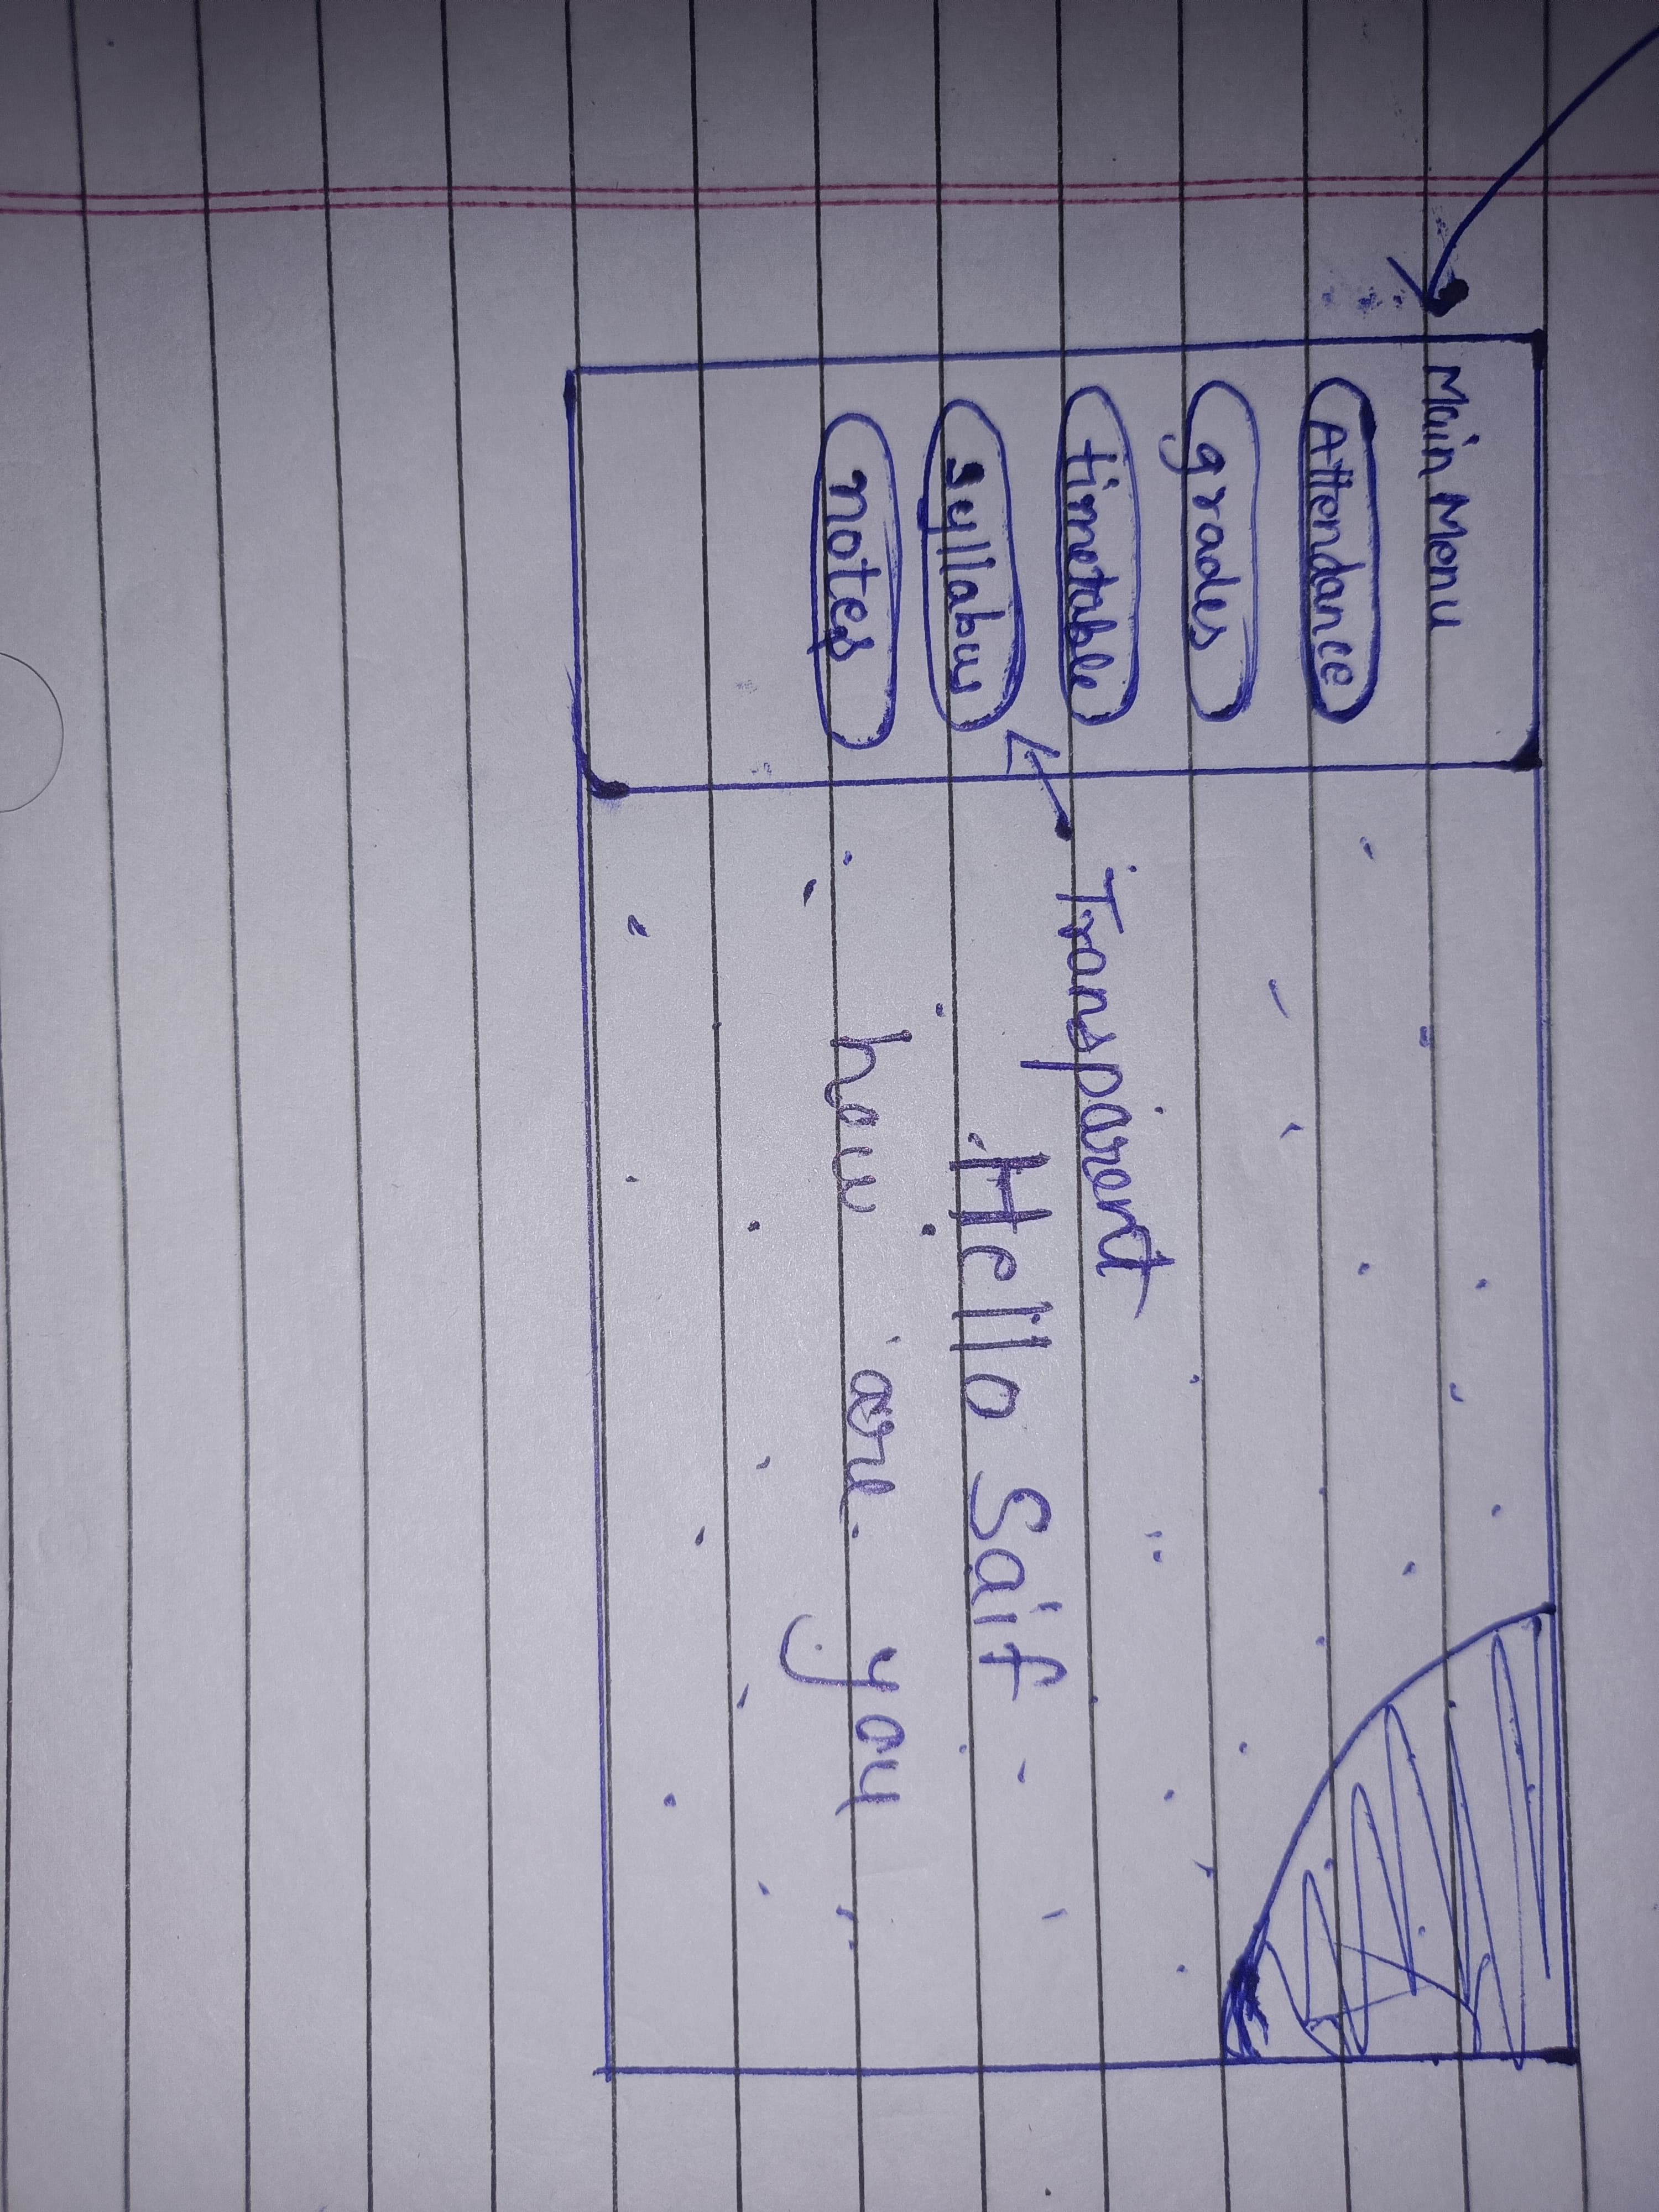 Main Menu
Attendance
grades
timetable
syllabus
notes
Transparent
Hello Saif
how are you